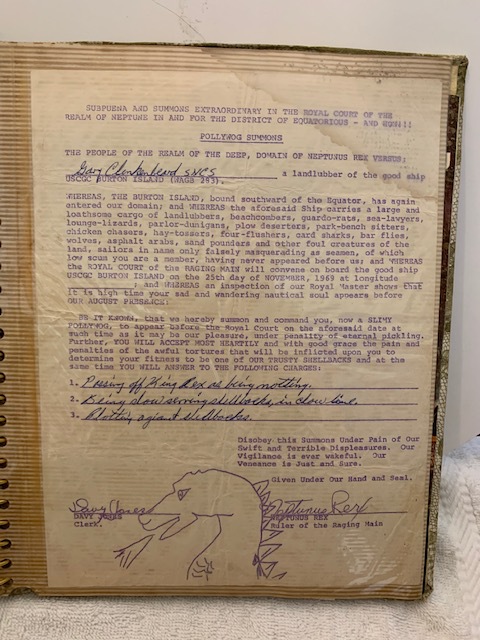 SUBPUENA AND SUMMONS EXTRAORDINARY IN THE ROYAL COURT OF THE
REALM OF NEPTUNE IN AND FOR THE DISTRICT OF EQUATORIOUS - AND HOW!!!
POLLYWOG SUMMONS
THE PEOPLE OF THE REALM OF THE DEEP, DOMAIN OF NEPTUNUS REX VERSUS:
Gary Clinkenbeard a landlubber of the good ship
USCGC BURTON ISLAND (WAGB 283).
WHEREAS, THE BURTON ISLAND, bound southward of the Equator, has again
entered our domain; and WHEREAS the aforesaid Ship carries a large and
loathsome cargo of landlubbers, beachcombers, guardo-rats, sea-lawyers,
lounge-lizards, parlor-dunigans, plow deserters, park-bench sitters,
chicken chasers, hay-tossers, four-flushers, card sharks, bar flies,
wolves, asphalt arabs, sand pounders and other foul creatures of the
land, sailors in name only falsely masquerading as seamen, of which
low scum you are a member, having never appeared before us; and WHEREAS
the ROYAL COURT of the RAGING MAIN will convene on board the good ship
USCGC BURTON ISLAND on the 25th day of NOVEMBER, 1969 at longitude
; and WHEREAS an inspection of our Royal Master shows that
it is high time your sad and wandering nautical soul appears before
OUR AUGUST PRESENCE:
BE IT KNOWN, that we hereby summon and command you, now a SLIMY
POLLYWOG, to appear before the Royal Court on the aforesaid date at
such time as it may be our pleasure, under penality of eternal pickling.
Further, YOU WILL ACCEPT MOST HEARTILY and with good grace the pain and
penalties of the awful tortures that will be inflicted upon you to
determine your fitness to be one of OUR TRUSTY SHELLBACKS and at the
same time YOU WILL ANSWER TO THE FOLLOWING CHARGES:
1. Passing off King Rex as being notting.
2. Being slow serving shellbacks, in chow line.
3. Plotting agianst shellbacks.
Disobey this Summons Under Pain of Our
Swift and Terrible Displeasures. Our
Vigilance is ever wakeful. Our
Vengeance is Just and Sure.
Given Under Our Hand and Seal.
Davy Jones Neptunus Rex
DAVY JONES NEPTUNUS REX
Clerk. Ruler of the Raging Main